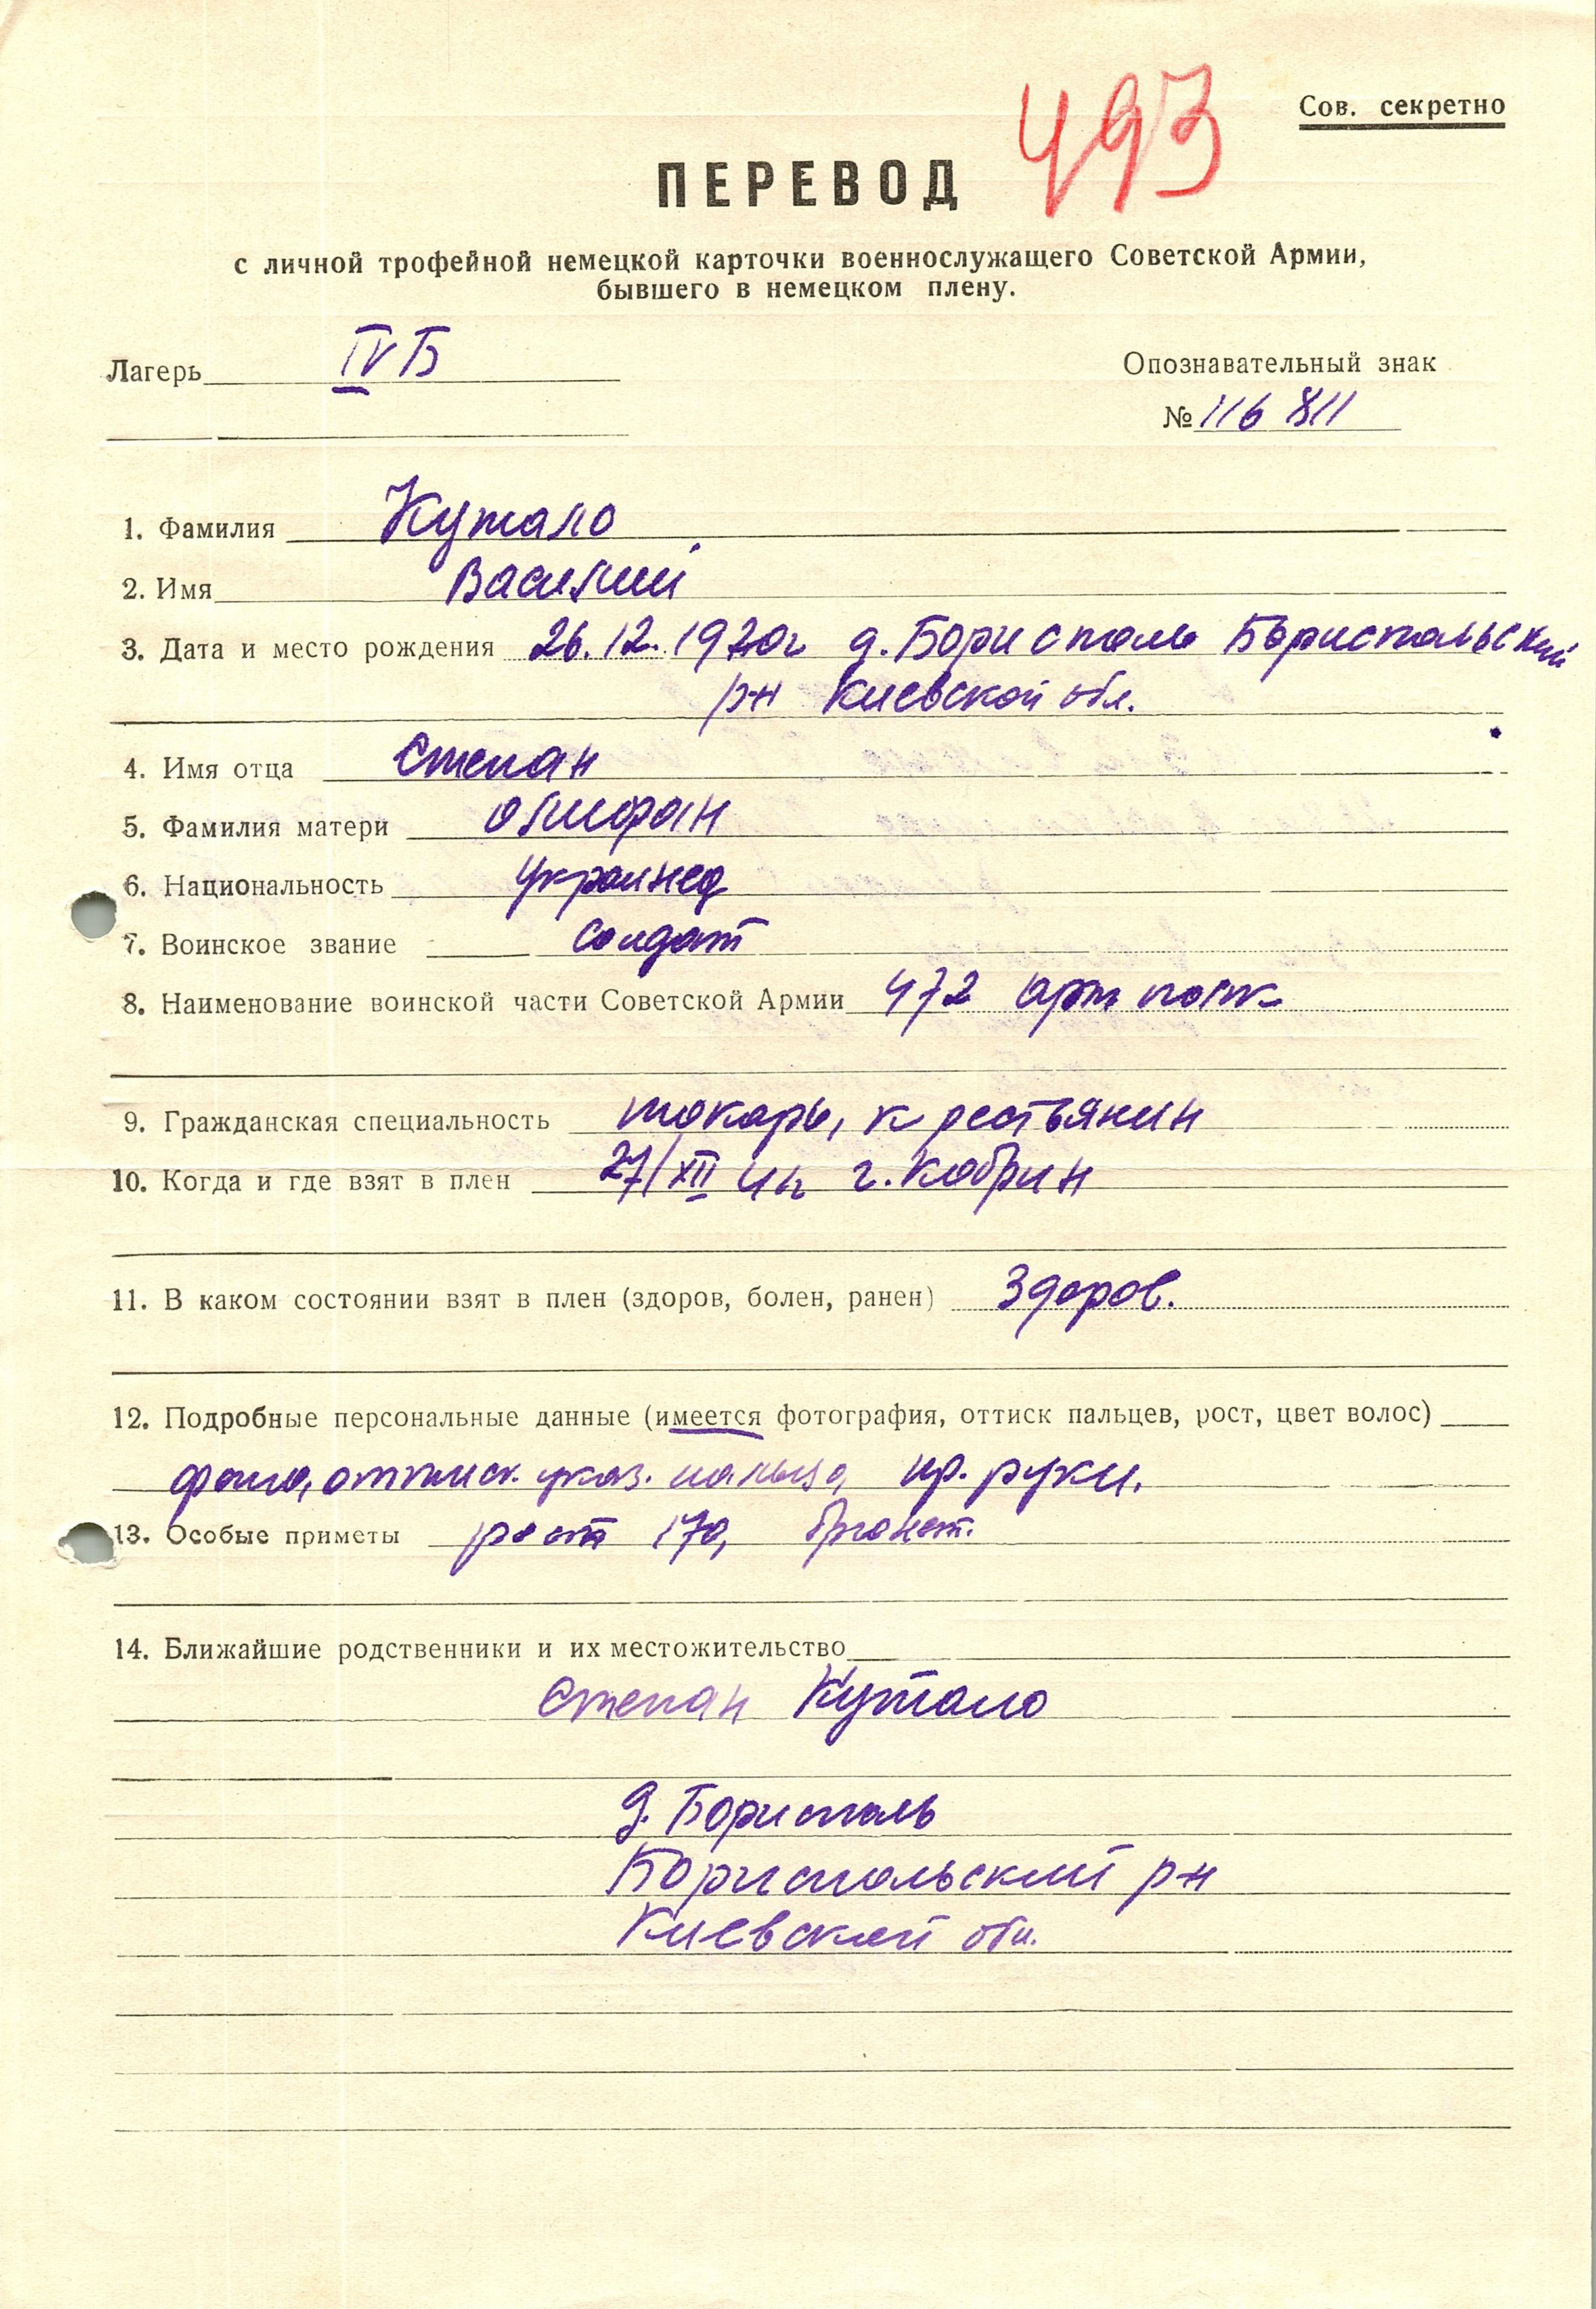 493
Сов. секретно
ПЕРЕВОД
с личной трофейной немецкой карточки военнослужащего Советской Армии,
бывшего в немецком плену.
Лагерь IV Б
Опознавательный знак
№ 116 811
1. Фамилия Кутало
2. Имя Василий
3. Дата и место рождения 26.12.1920г д. Бориспол Бориспольский
р-н Киевской обл.
4. Имя отца Степан
5. Фамилия матери Олифан
6. Национальность украинец
7. Воинское звание солдат
8. Наименование воинской части Советской Армии 472 арт полк
9. Гражданская специальность токарь, крестьянин
10. Когда и где взят в плен 27/XII 41г г. Кобрин
11. В каком состоянии взят в плен (здоров, болен, ранен) Здоров.
12. Подробные персональные данные (имеется фотография, оттиск пальцев, рост, цвет волос)
фото, оттиск. указ. пальца, пр. руки.
13. Особые приметы рост 170, брюнет.
14. Ближайшие родственники и их местожительство
Степан Кутало
д. Бориполь
Бориспольский р-н
Киевской обл.